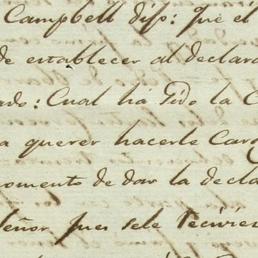 Campbell dijo: Que él
de establecer al declara
ado: Cual há sido la C
a querer hacerle Carg
omento de dar la decla
eñor Juez sele requirie